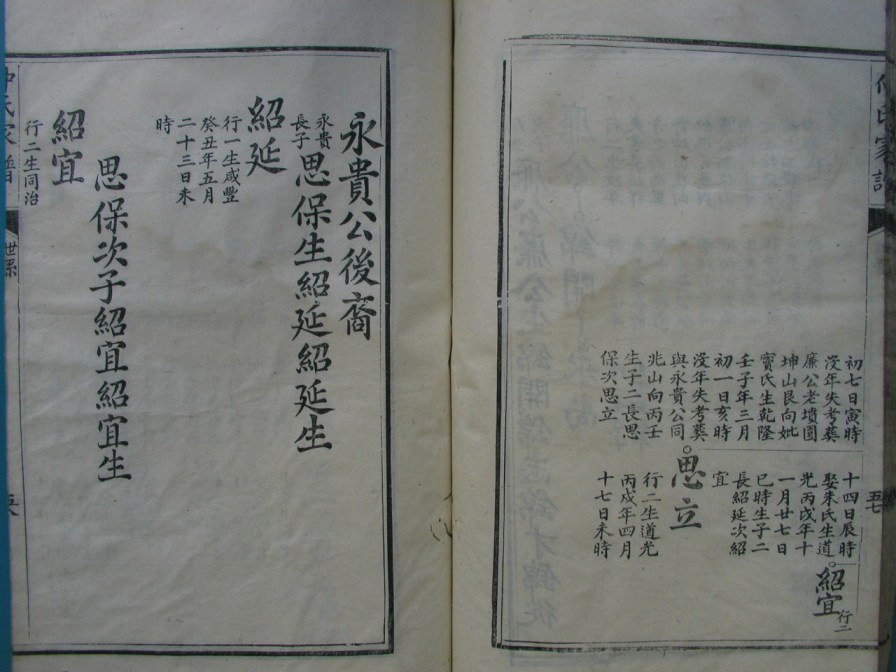 氏家譜
五七
初七日寅時
沒年失考葬
廉公老墳園
坤山艮向妣
竇氏生乾隆
壬子年三月
初一日亥時
沒年失考葬
與永貴公同
兆山向丙壬
生子二長思
保次思立
十四日辰時
娶朱氏生道
光丙戌年十
一月廿七日
巳時生子二
長紹延次紹
宜
思立
行二生道光
丙戌年四月
十七日未時
紹宜
行二
永貴公後裔
永貴
長子
思保生紹延紹延生
紹延
行一生咸豐
癸丑年五月
二十三日未
時
思保次子紹宜紹宜生
紹宜
行二生同治
氏家譜
世系
五八